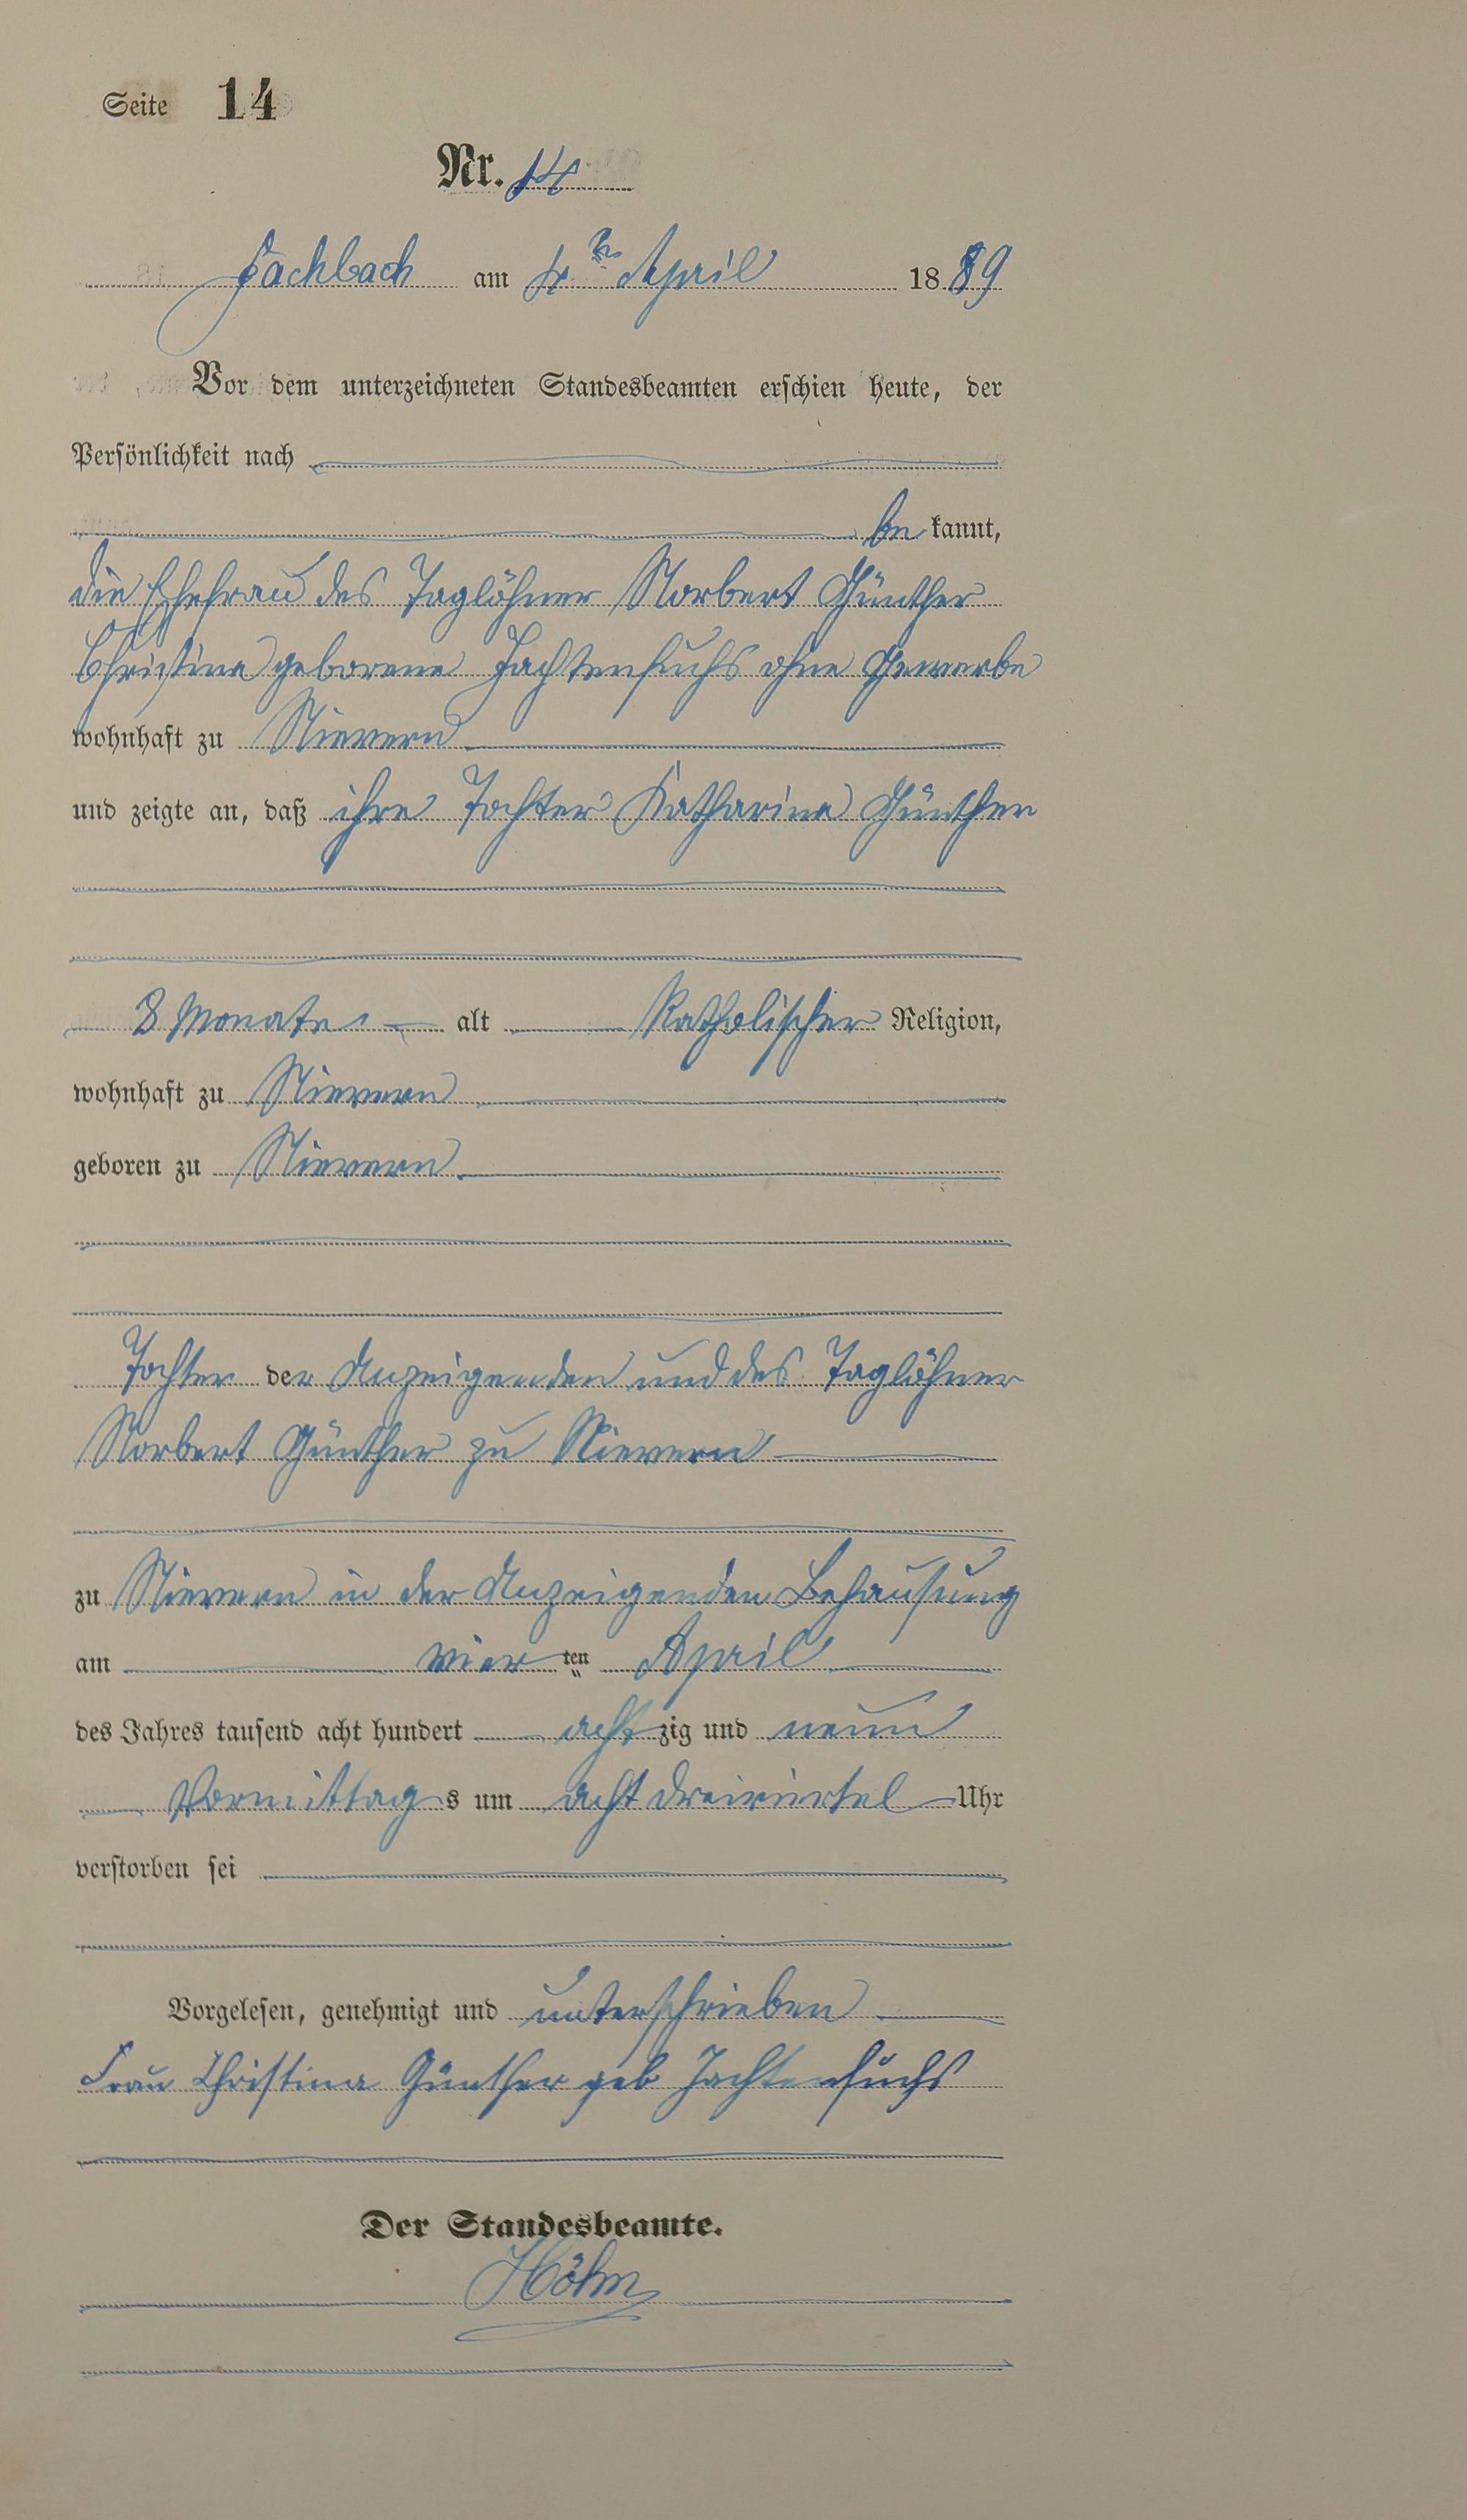 Seite 14
Nr. 14
Fachbach am 4ten April 1889
Vor dem unterzeichneten Standesbeamten erschien heute, der
Persönlichkeit nach
be kannt,
die Ehefrau des Taglöhner Norbert Günther
Christina geborene Jachtenfuchs ohne Gewerbe
wohnhaft zu Nievern
und zeigte an, daß ihre Tochter Katharina Günther
8 Monate alt Katholischer Religion,
wohnhaft zu Nievern
geboren zu Nievern
Tochter der Anzeigenden und des Taglöhner
Norbert Günther zu Nievern
zu Nievern in der Anzeigenden Behausung
am vier ten April
des Jahres tausend acht hundert acht zig und neun
Vormittag s um acht dreiviertel Uhr
verstorben sei
Vorgelesen, genehmigt und unterschrieben
Frau Christina Günther geb Jachtenfuchs
Der Standesbeamte.
Höhn